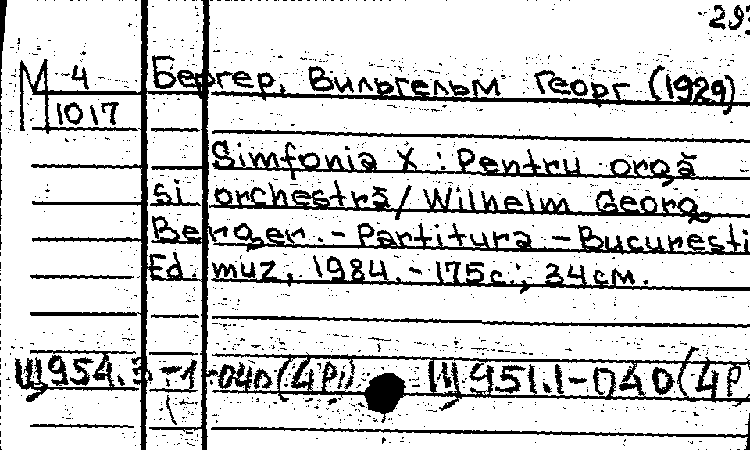 293
М 4 Бергер, Вильгельм Георг (1929)
1017
Simfonia X : Pentru orgă
si orchestră / Wilhelm Georg
Berger. - Partitura - Bucuresti
Ed. muz, 1984. - 175с.; 34см.
Щ954.3-1-040(4Рі) Щ951.1-040(4Р